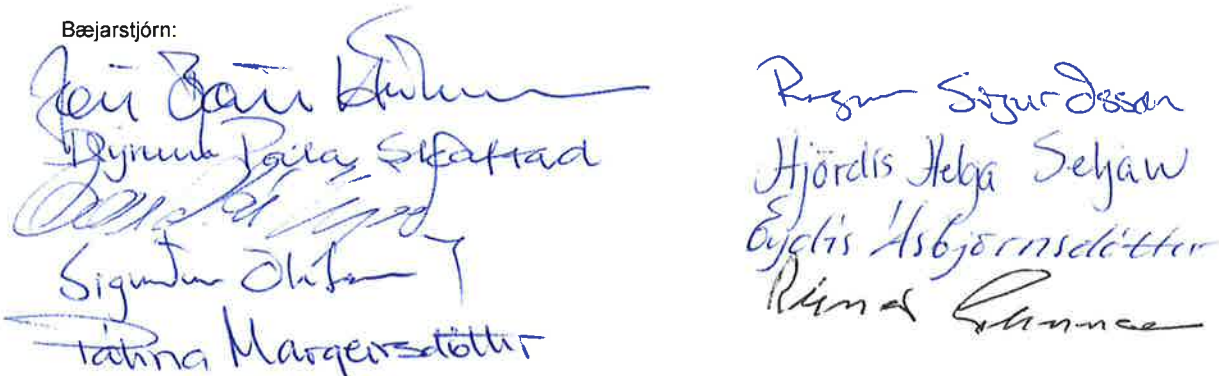 Bæjarstjórn:
Jón Björn
Dýrunn Pála Skaftad
Sigurður Ólafsson
Pálína Margeirsdóttir
Ragnar Sigurðsson
Hjördís Helga Seljan
Eydís Ásbjörnsdóttir
Rúnar Gunnarsson